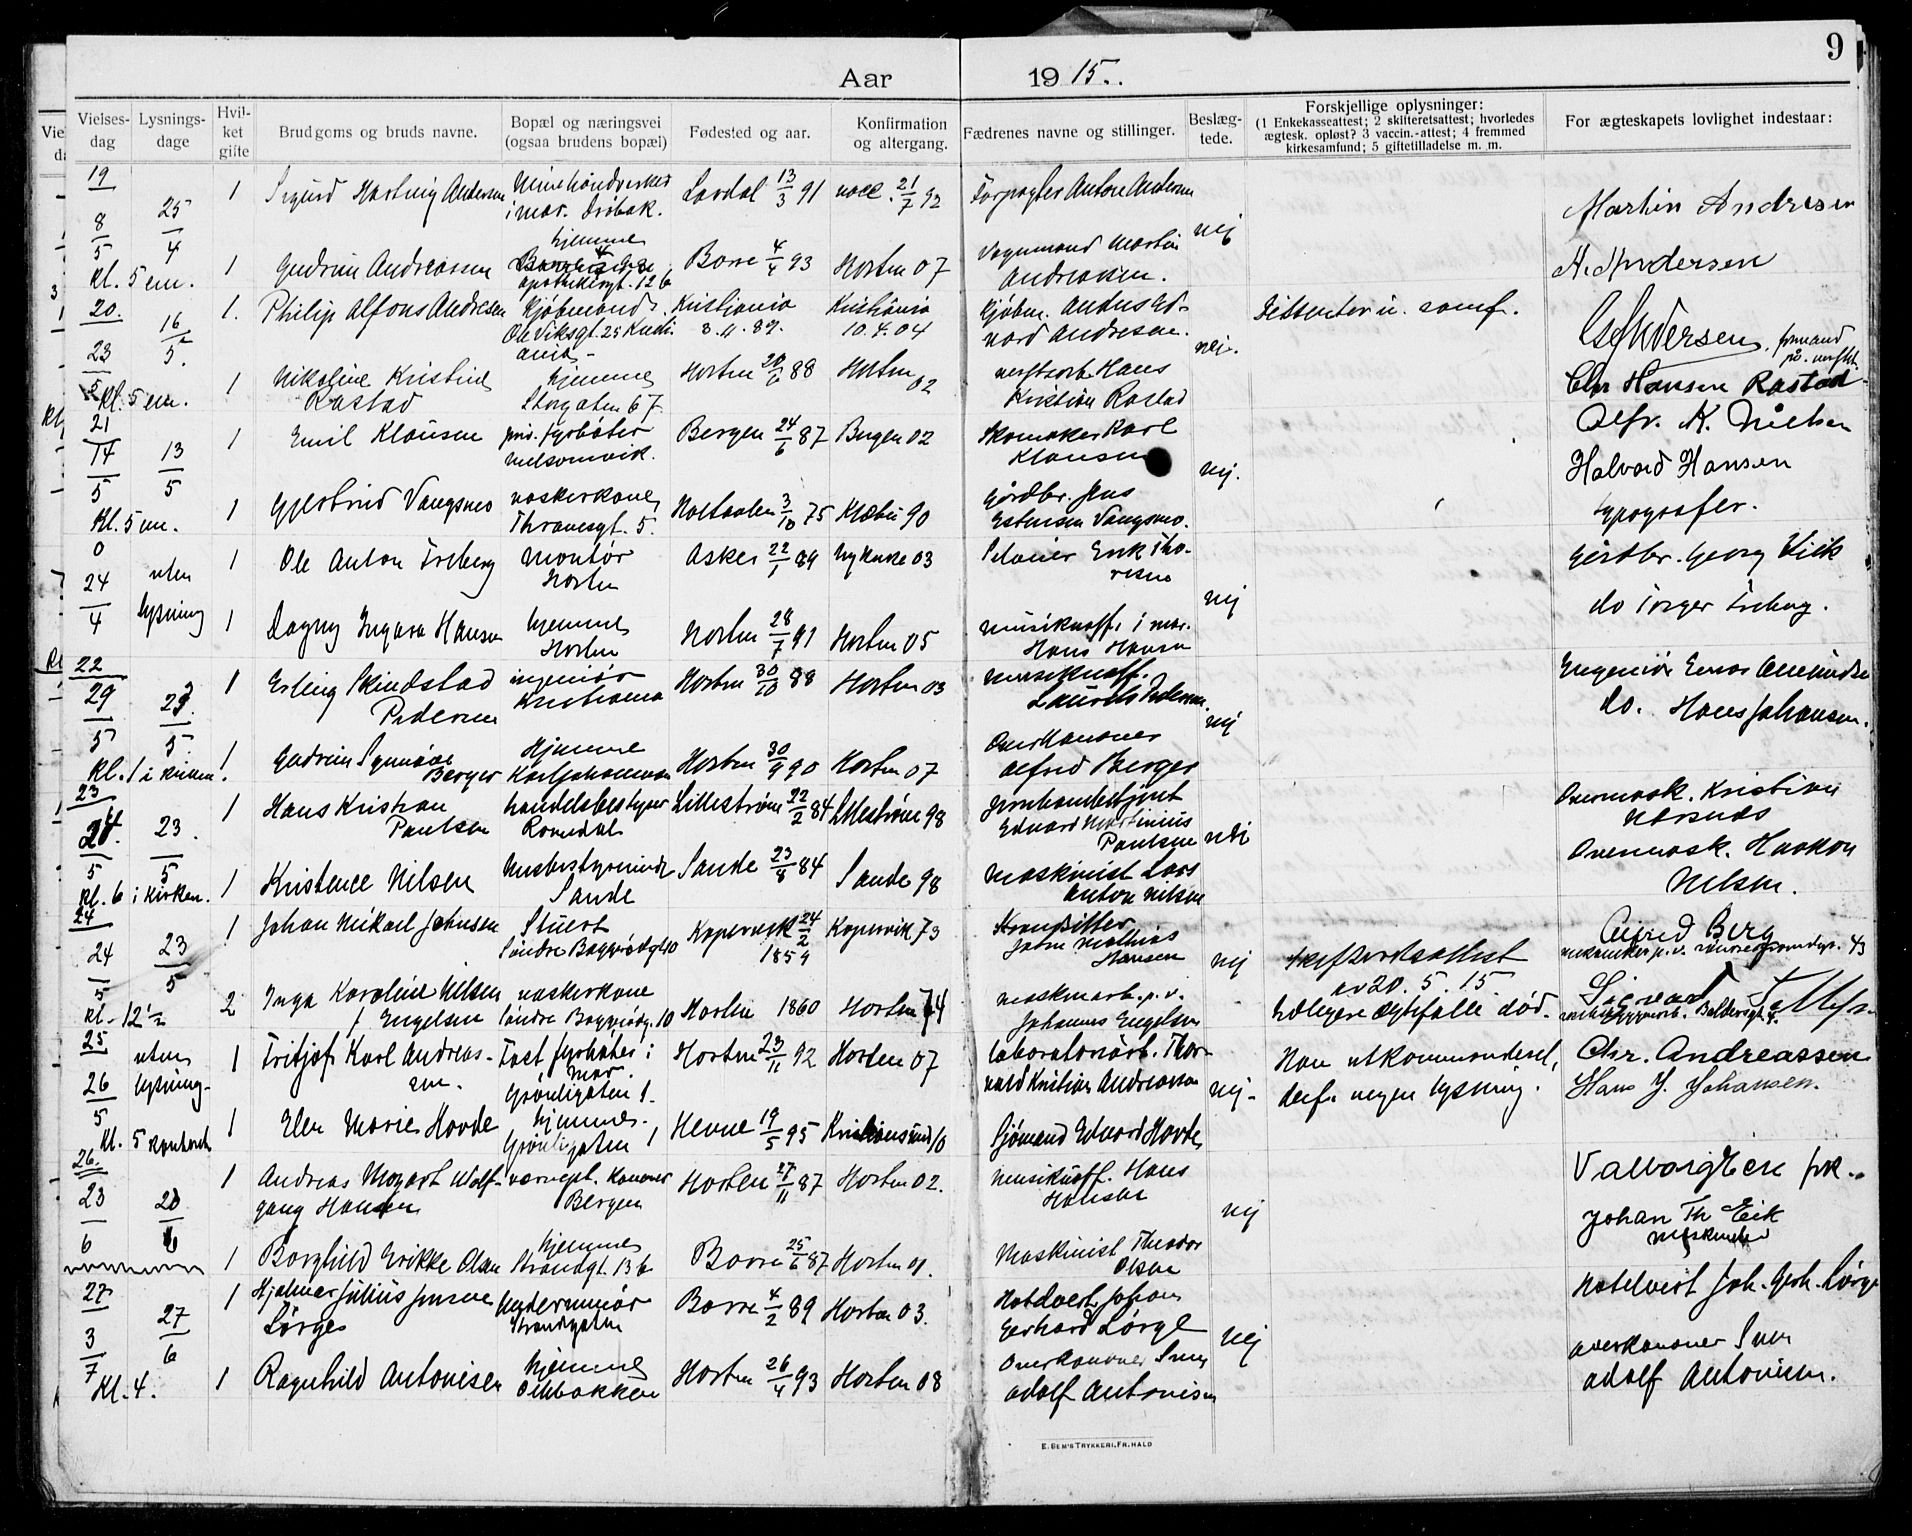 9
Aar 1915.
Vielses-dag
Lysnings-dage
Hvil-ket gifte
Brudgoms og bruds navne.
Bopæl og næringsvei (ogsaa brudens bopæl)
Fødested og aar.
Konfirmation og altergang.
Fædrenes navne og stillinger.
Beslæg-tede.
Forskjellige oplysninger: (1 Enkekasseattest; 2 skifteretsattest; hvorledes ægtesk. opløst? 3 vaccin.-attest; 4 fremmed kirkesamfund; 5 giftetilladelse m. m.
For ægteskapets lovlighet indestaar:
19
8/5 25/4 1 Sigurd Hartvig Andersen i mar. Drøbak. Lardal 13/3 91 vacc. 21/7 92 Forpagter Anton Andersen nei Martin Andresen
kl. 5 em. 1 Gudrun Andreassen hjemme Apothekergt. 12 b Borre 4/4 93 Horten 07 Vognmand Martin Andreassen. A. Andersen
20.
23/5 16/5. 1. Philip Alfons Andresen Kjøbmand Ole Viksgt. 25 Kristiania Kristiania 3.11.89. Kristiania 10.4.04 Kjøbm. Andresen nei. Dissenter u. samf. formand
kl. 5 em. 1 Nikoline Kristine Rastad hjemme Storgaten 67 Horten 20/6 88 Horten 02 verftsarb. Hans Kristian Rastad Chr Hansen Rastad
21
14/5 13/5 1 Emil Klausen fyrbøter Melsomvik. Bergen 24/6 87 Bergen 02 Skomaker Karl Klausen nej. Alfr. K. Nielsen
kl. 5 em. 1 Gjertrud Vangsmo vaskerkone Thranesgt. 5. Holtaalen 3/10 75 Klæbu 90 Gårdbr. Jens Estensen Vangsmo. Halvard Hansen typograf.
0
24/4 uten lysning 1 Ole Anton Treberg Montør Horten Asker 22/1 89 Nykirke 03 Erik Tho-resen nej Gårdbr. Georg Vik
1 Dagny Ingara Hansen hjemme Horten Horten 28/7 91 Horten 05 musikuoff. i mar. Hans Hansen do Torger Treberg.
22
29/5 23/5. 1 Erling Skindstad Pedersen ingeniør Kristiania Horten 30/10 88 Horten 03 musikuoff. Laurits Pedersen. nej Ingeniør Einar
kl. 1 i kirken. 1 Gudrun Synnøve Berger Hjemme Karljohansvern Horten 30/9 90 Horten 07 Overkanoner Alfred Berger do. Hans Johansen.
23
24./5 23/5. 1 Hans Kristian Paulsen handelsbestyrer Romedal Lillestrøm 22/2 84 Lillestrøm 98 Eduard Martinius Paulsen nei Overmask. Kristian
kl. 6 i kirken. 1 Kristence Nilsen Husbestyrerinde Sande Sande 23/8 84 Sande 98 Maskinist Lars Anton Nilsen Overmask. Haakon Nilsen.
24
24/5 23/5 1 Johan Mikael Johnsen Stuert Søndre Baggerødgt 10 Kopervik 24/2 1859 Kopervik 73 John Mathias Hansen nej Skifteretsattest av 20.5.15 Alfred Berg
kl. 12 1/2 2 Inga Karoline Nilsen f. Engelsen vaskerkone Søndre Baggerødg. 10 Horten 1860 Horten 74 maskinarb. p.v. Johannes Engelsen tidligere egtefælle død. Sigvart
25
26/5 uten lysning 1 Fritjof Karl Andreas-sen. Fast fyrbøter i Mar. Grønligaten 1. Horten 23/11 92 Horten 07 laboratoriearb. Thor-vald Kristian Andreassen nej. Han utkommanderet, derfor ingen lysning. Chr. Andreassen
kl. 5 kontoret 1 Elen Marie Hovde hjemme. Grønligaten 1 Hevne 19/5 95 Kristiansund 10 Sjømand Eduard Hovde Hans J. Johansen.
26.
23/6 20/6 1 Andreas Mozart Wolf-gang Hansen vernept. Kanoner Bergen Horten 27/11 87 Horten 02. Musikuoff. Hans Hansen nej Valborg Eik frk.
1 Borghild Erikke Olsen hjemme Strandgt. 13 b Borre 25/6 87 Horten 01. Maskinist Theodor Olsen Johan Th Eik
27
3/7 27/6 1 Hjalmar Julius Jensen Lørge Underminør Strandgaten Borre 4/2 89 Horten 03. Hotelvert Johan Gerhard Lørge nej Hotelvert Joh. Gerh. Lørge
Kl. 4. 1 Ragnhild Antonisen hjemme Oskbakken Horten 26/4 93 Horten 08 Overkanoner Sven Adolf Antonisen overkanoner Sven Adolf Antonisen.
E. Sem's Trykkeri, Fr.hald